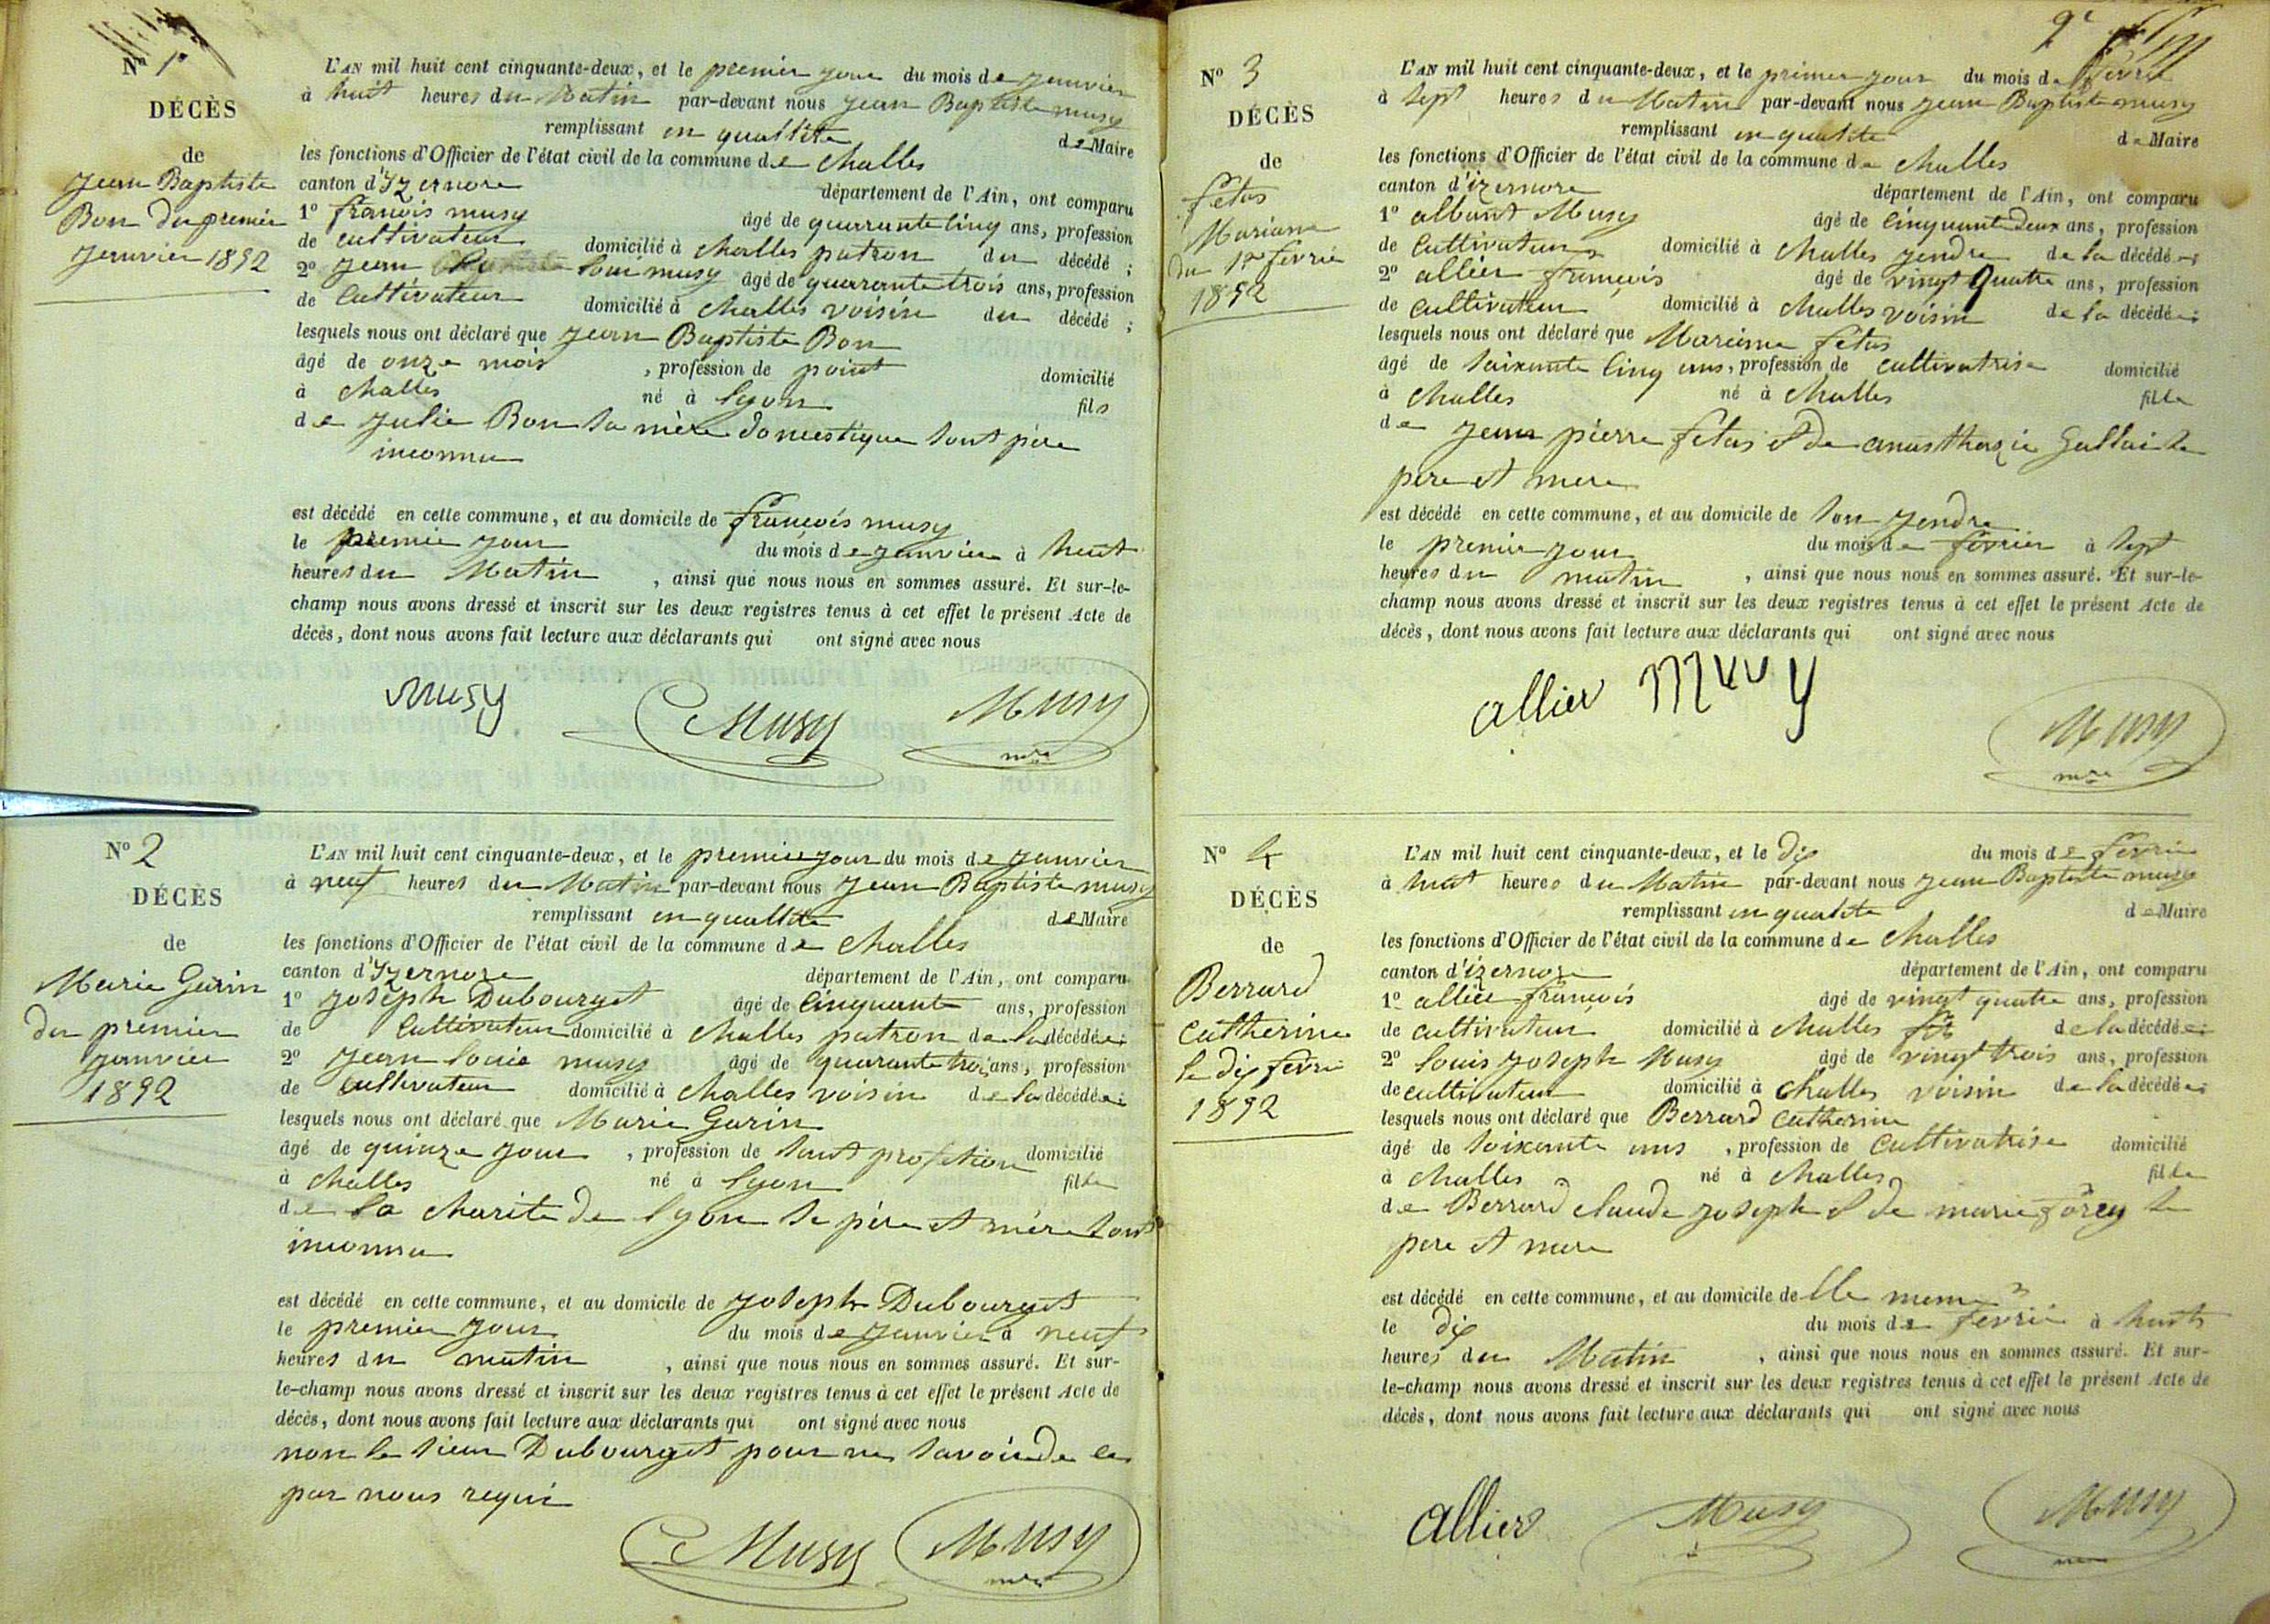 Nº 1er
DÉCÈS
de
Jean Baptiste
Bon du premier
Janvier 1852
L'AN mil huit cent cinquante-deux, et le premier jour du mois de Janvier
à huit heures du Matin par-devant nous Jean Baptiste musy
remplissant en quallité de Maire
les fonctions d'Officier de l'état civil de la commune de challes
canton d'Izernore département de l'Ain, ont comparu
1º françois musy âgé de quarante cinq ans, profession
de cultivateur domicilié à challes patron du décédé ;
2º Jean Loui musy âgé de quarante trois ans, profession
de Cultivateur domicilié à challes voisin du décédé ;
lesquels nous ont déclaré que Jean Baptiste Bon
âgé de onze mois , profession de point domicilié
à challes né à Lyon fils
de Julie Bon sa mère domestique sont père
inconnu
est décédé en cette commune, et au domicile de françois musy
le premier jour du mois de Janvier à huit
heures du Matin , ainsi que nous nous en sommes assuré. Et sur-le-
champ nous avons dressé et inscrit sur les deux registres tenus à cet effet le présent Acte de
décès, dont nous avons fait lecture aux déclarants qui ont signé avec nous
musy Musy Musy
mre
Nº 2
DÉCÈS
de
Marie Garin
du premier
janvier
1852
L'AN mil huit cent cinquante-deux, et le premier jour du mois de Janvier
à neuf heures du Matin par-devant nous Jean Baptiste musy
remplissant en quallité de Maire
les fonctions d'Officier de l'état civil de la commune de challes
canton d'Izernore département de l'Ain, ont comparu
1º Joseph Dubourget âgé de cinquante ans, profession
de Cultivateur domicilié à challes patron de la décédée ;
2º Jean Louie musy âgé de quarante trois ans, profession
de cultivateur domicilié à challes voisin de la décédée ;
lesquels nous ont déclaré que Marie Garin
âgé de quinze jour , profession de sant profetion domicilié
à challes né à Lyon fille
de la charite de Lyon se père et mère sont
inconnu
est décédé en cette commune, et au domicile de Joseph Dubourget
le premier jour du mois de Janvier à neuf
heures du matin , ainsi que nous nous en sommes assuré. Et sur-
le-champ nous avons dressé et inscrit sur les deux registres tenus à cet effet le présent Acte de
décès, dont nous avons fait lecture aux déclarants qui ont signé avec nous
non le sieur Dubourget pour ne savoir de ce
par nous requi
Musy Musy
mre
Nº 3
DÉCÈS
de
fétas
Mariane
du 1er févrié
1852
L'AN mil huit cent cinquante-deux, et le primier jour du mois de fevrié
à sept heures du Matin par-devant nous Jean Baptiste musy
remplissant en qualite de Maire
les fonctions d'Officier de l'état civil de la commune de challes
canton d'izernore département de l'Ain, ont comparu
1º albant Musy âgé de cinquante deux ans, profession
de Cultivateur domicilié à challes gendre de la décédée ;
2º allier françois âgé de vingt quatre ans, profession
de cultivateur domicilié à challes voisin de la décédée ;
lesquels nous ont déclaré que Mariane fétas
âgé de soixante cinq ans, profession de cultivatrise domicilié
à challes né à challes fille
de Jean pierre fétas et de anasthazie Gallai se
père et mere
est décédé en cette commune, et au domicile de son gendre
le premier jour du mois de février à sept
heures du matin , ainsi que nous nous en sommes assuré. Et sur-le-
champ nous avons dressé et inscrit sur les deux registres tenus à cet effet le présent Acte de
décès, dont nous avons fait lecture aux déclarants qui ont signé avec nous
allier Musy
Musy
mre
Nº 4
DÉCÈS
de
Berrard
catherine
le dix fevrie
1852
L'AN mil huit cent cinquante-deux, et le dix du mois de fevrie
à huit heures du Matin par-devant nous Jean Baptiste musy
remplissant en qualite de Maire
les fonctions d'Officier de l'état civil de la commune de challes
canton d'izernore département de l'Ain, ont comparu
1º allier françois âgé de vingt quatre ans, profession
de cultivateur domicilié à challes fis de la décédée ;
2º Louis Joseph Musy âgé de vingt trois ans, profession
de cultivateur domicilié à challes voisin de la décédée ;
lesquels nous ont déclaré que Berrard catherine
âgé de soixante ans , profession de cultivatrise domicilié
à challes né à challes fille
de Berrard claude Joseph et de marie forey se
pere et mere
est décédé en cette commune, et au domicile de Elle meme
le dix du mois de fevrie à huit
heures du Matin , ainsi que nous nous en sommes assuré. Et sur-
le-champ nous avons dressé et inscrit sur les deux registres tenus à cet effet le présent Acte de
décès, dont nous avons fait lecture aux déclarants qui ont signé avec nous
allier Musy Musy